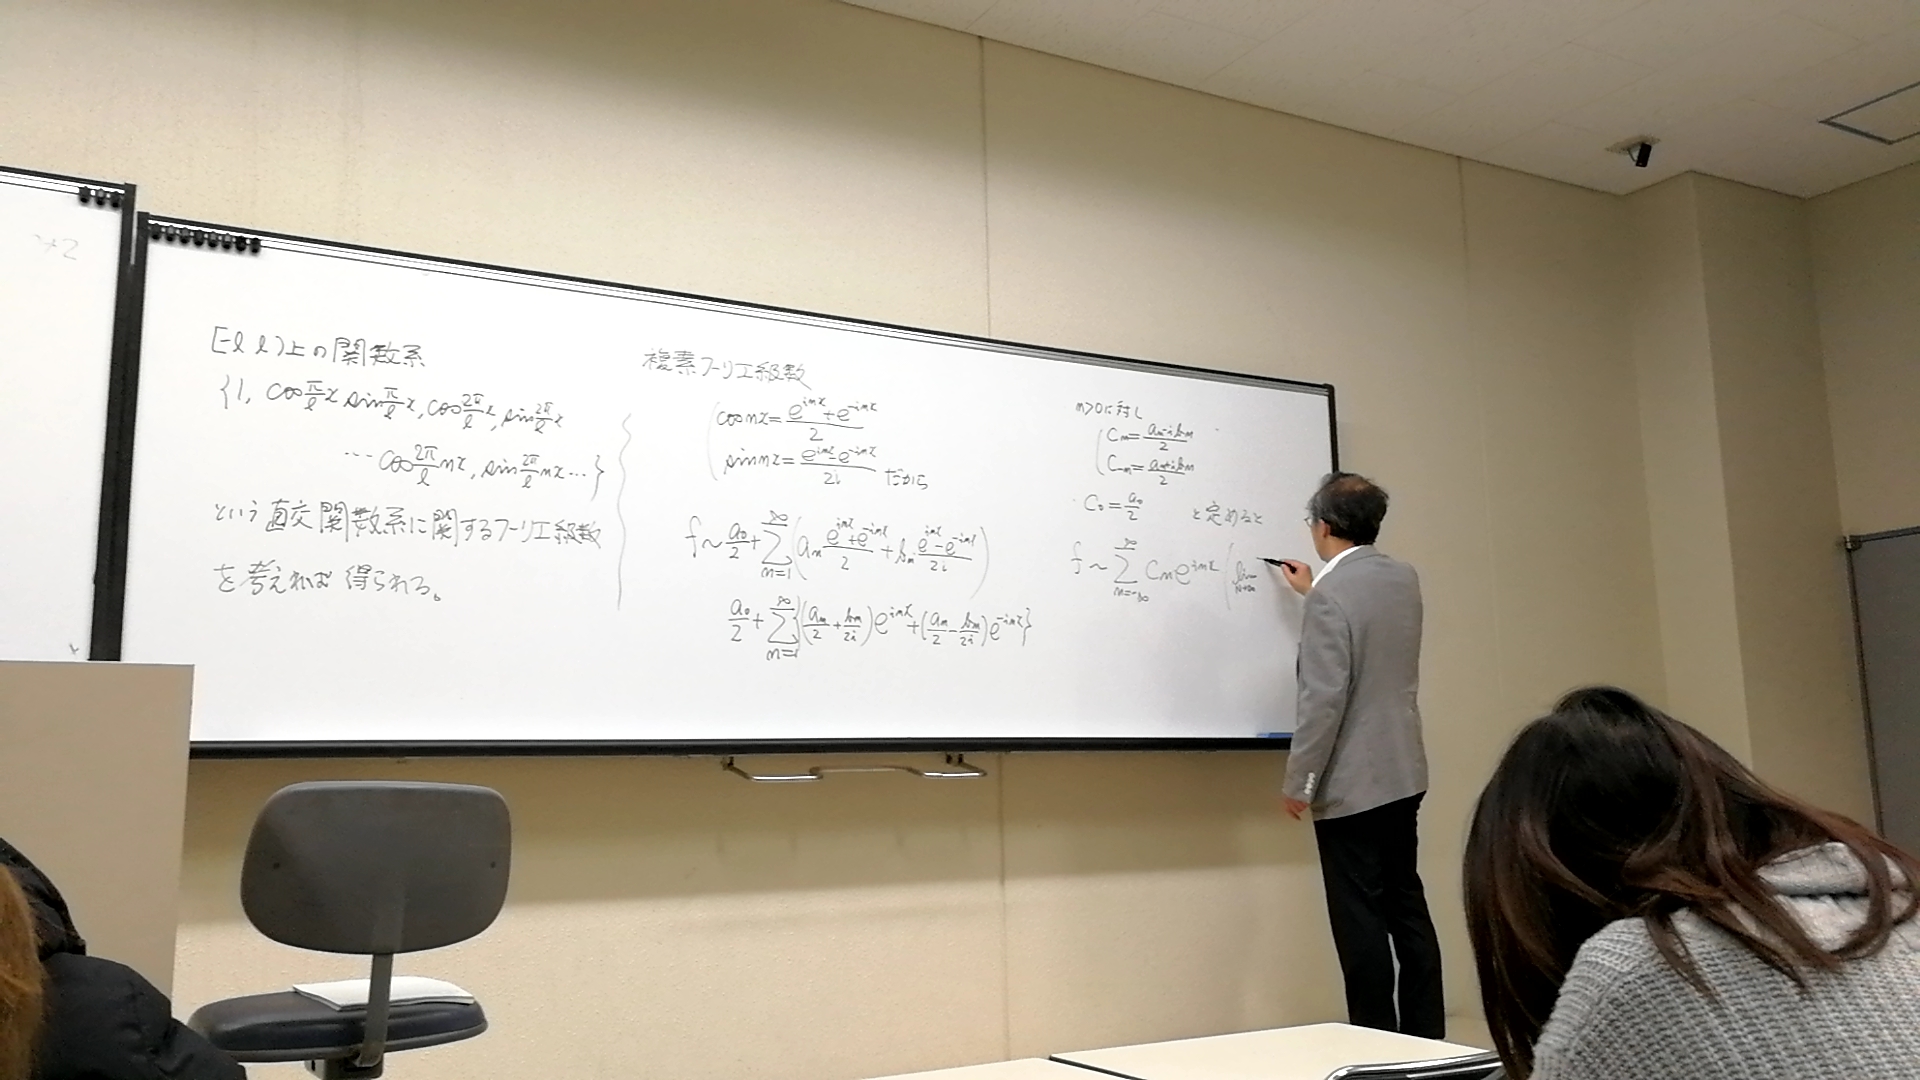 [-l l) 上の関数系
{1, cos π/l x, sin π/l x, cos 2π/l x, sin 2π/l x
… cos 2π/l nx, sin 2π/l nx … }
という直交関数系に関するフーリエ級数
を考えれば得られる。
複素フーリエ級数
cos nx = (e^{inx} + e^{-inx})/2
sin nx = (e^{inx} - e^{-inx})/2i だから
f ~ a₀/2 + Σ_{n=1}^{∞} (aₙ (e^{inx} + e^{-inx})/2 + bₙ (e^{inx} - e^{-inx})/2i)
a₀/2 + Σ_{n=1}^{∞} {(aₙ/2 + bₙ/2i) e^{inx} + (aₙ/2 - bₙ/2i) e^{-inx}}
n>0に対し
Cₙ = (aₙ - ibₙ)/2
C₋ₙ = (aₙ + ibₙ)/2
C₀ = a₀/2 と定めると
f ~ Σ_{n=-∞}^{∞} Cₙ e^{inx} ( lim_{N→∞}